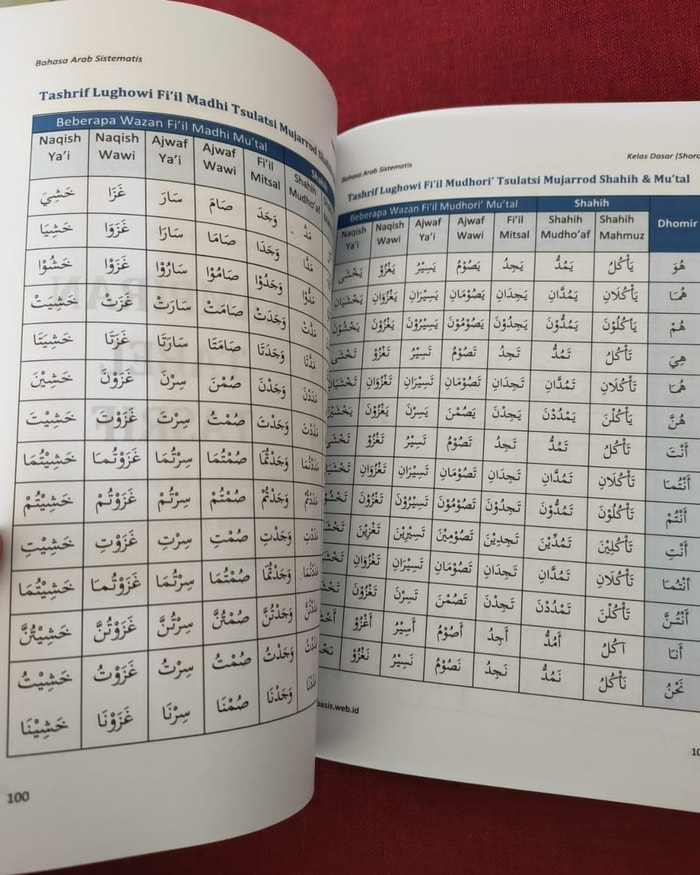 Bahasa Arab Sistematis
Tashrif Lughowi Fi'il Madhi Tsulatsi Mujarrod
Beberapa Wazan Fi'il Madhi Mu'tal
Naqish Ya'i Naqish Wawi Ajwaf Ya'i Ajwaf Wawi Fi'il Mitsal Shahih Mudho'af
خَشِيَ غَزَا سَارَ صَامَ وَجَدَ مَدَّ
خَشِيَا غَزَوَا سَارَا صَامَا وَجَدَا مَدَّا
خَشُوْا غَزَوْا سَارُوْا صَامُوْا وَجَدُوْا مَدُّوْا
خَشِيَتْ غَزَتْ سَارَتْ صَامَتْ وَجَدَتْ مَدَّتْ
خَشِيَتَا غَزَتَا سَارَتَا صَامَتَا وَجَدَتَا مَدَّتَا
خَشِيْنَ غَزَوْنَ سِرْنَ صُمْنَ وَجَدْنَ مَدَدْنَ
خَشِيْتَ غَزَوْتَ سِرْتَ صُمْتَ وَجَدْتَ مَدَدْتَ
خَشِيْتُمَا غَزَوْتُمَا سِرْتُمَا صُمْتُمَا وَجَدْتُمَا
خَشِيْتُمْ غَزَوْتُمْ سِرْتُمْ صُمْتُمْ وَجَدْتُمْ
خَشِيْتِ غَزَوْتِ سِرْتِ صُمْتِ وَجَدْتِ
خَشِيْتُمَا غَزَوْتُمَا سِرْتُمَا صُمْتُمَا وَجَدْتُمَا
خَشِيْتُنَّ غَزَوْتُنَّ سِرْتُنَّ صُمْتُنَّ وَجَدْتُنَّ
خَشِيْتُ غَزَوْتُ سِرْتُ صُمْتُ وَجَدْتُ
خَشِيْنَا غَزَوْنَا سِرْنَا صُمْنَا وَجَدْنَا
100
Bahasa Arab Sistematis
Kelas Dasar (Shoro
Tashrif Lughowi Fi'il Mudhori' Tsulatsi Mujarrod Shahih & Mu'tal
Beberapa Wazan Fi'il Mudhori' Mu'tal Shahih Dhomir
Naqish Ya'i Naqish Wawi Ajwaf Ya'i Ajwaf Wawi Fi'il Mitsal Shahih Mudho'af Shahih Mahmuz
يَخْشَى يَغْزُوْ يَسِيْرُ يَصُوْمُ يَجِدُ يَمُدُّ يَأْكُلُ هُوَ
يَخْشَيَانِ يَغْزُوَانِ يَسِيْرَانِ يَصُوْمَانِ يَجِدَانِ يَمُدَّانِ يَأْكُلَانِ هُمَا
يَخْشَوْنَ يَغْزُوْنَ يَسِيْرُوْنَ يَصُوْمُوْنَ يَجِدُوْنَ يَمُدُّوْنَ يَأْكُلُوْنَ هُمْ
تَخْشَى تَغْزُوْ تَسِيْرُ تَصُوْمُ تَجِدُ تَمُدُّ تَأْكُلُ هِيَ
تَخْشَيَانِ تَغْزُوَانِ تَسِيْرَانِ تَصُوْمَانِ تَجِدَانِ تَمُدَّانِ تَأْكُلَانِ هُمَا
يَغْزُوْنَ يَسِرْنَ يَصُمْنَ يَجِدْنَ يَمْدُدْنَ يَأْكُلْنَ هُنَّ
تَغْزُوْ تَسِيْرُ تَصُوْمُ تَجِدُ تَمُدُّ تَأْكُلُ أَنْتَ
تَغْزُوَانِ تَسِيْرَانِ تَصُوْمَانِ تَجِدَانِ تَمُدَّانِ تَأْكُلَانِ أَنْتُمَا
تَغْزُوْنَ تَسِيْرُوْنَ تَصُوْمُوْنَ تَجِدُوْنَ تَمُدُّوْنَ تَأْكُلُوْنَ أَنْتُمْ
تَغْزِيْنَ تَسِيْرِيْنَ تَصُوْمِيْنَ تَجِدِيْنَ تَمُدِّيْنَ تَأْكُلِيْنَ أَنْتِ
تَغْزُوَانِ تَسِيْرَانِ تَصُوْمَانِ تَجِدَانِ تَمُدَّانِ تَأْكُلَانِ أَنْتُمَا
تَغْزُوْنَ تَسِرْنَ تَصُمْنَ تَجِدْنَ تَمْدُدْنَ تَأْكُلْنَ أَنْتُنَّ
أَغْزُوْ أَسِيْرُ أَصُوْمُ أَجِدُ أَمُدُّ آكُلُ أَنَا
نَغْزُوْ نَسِيْرُ نَصُوْمُ نَجِدُ نَمُدُّ نَأْكُلُ نَحْنُ
basis.web.id
10